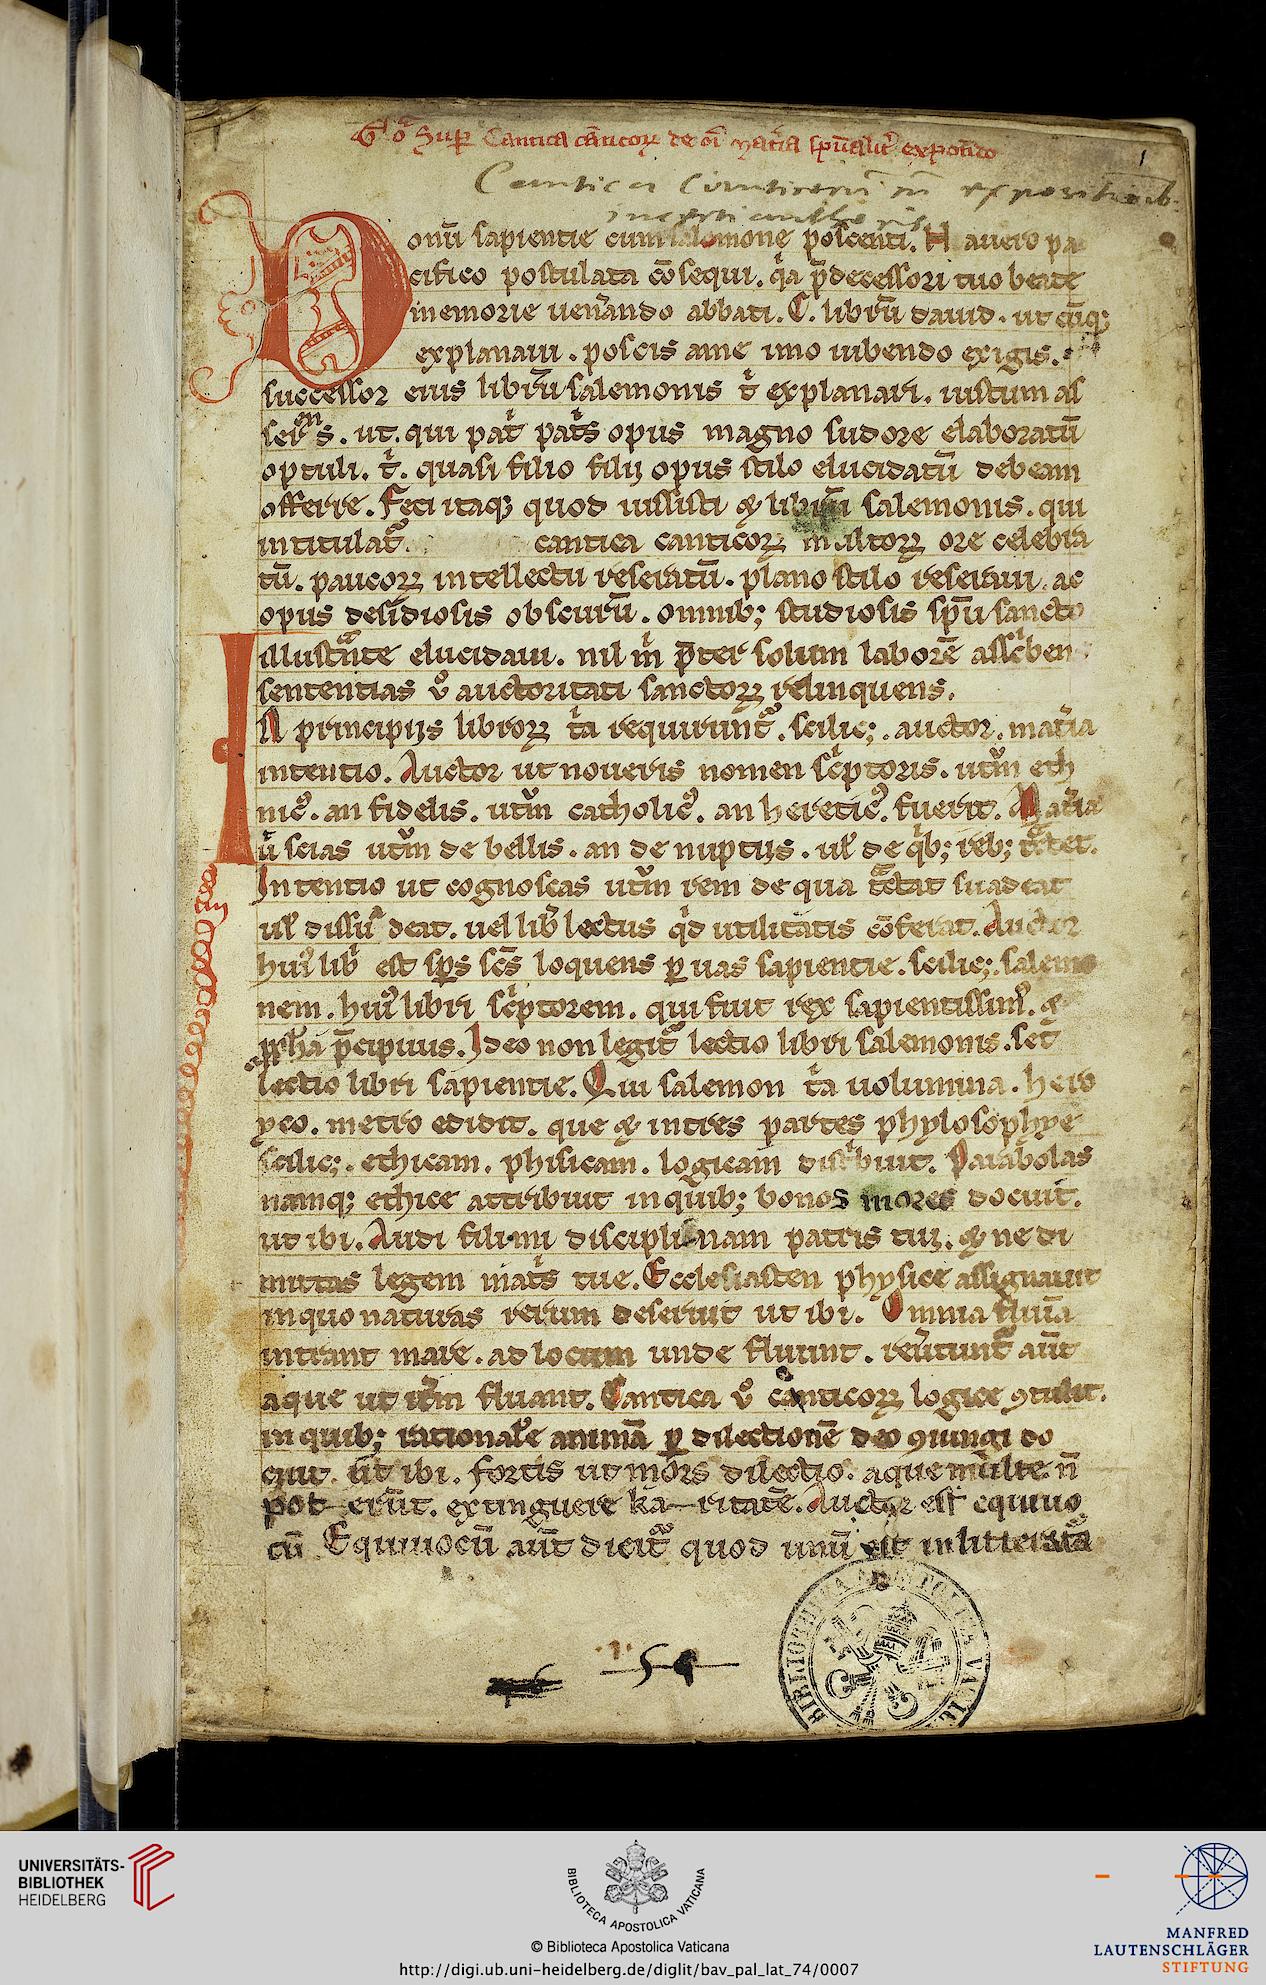 Sup Cantica cāticoꝝ de
1
Cantica Canticorū
Donū sapientie cum salomone poscenti. N auero pa
cifico postulata cōsequi. qͥa p̄decessori tuo beate
memorie uen̄ando abbati. C. librū dauid. ut cūq;
explanaui. poscis a me imo iubendo exigis.
successor eius librū salemonis t̄ explanari. iustum as
serens. ut. qui pat̄ pat̄s opus magno sudore elaboratū
optuli. t̄. quasi filio filij opus stilo elucidatū debeam
offerre. Feci itaq; quod iussisti ⁊ librum salemonis. qui
intitulat᷑ cantica canticoꝝ multoꝝ ore celebra
tū. paucoꝝ intellectu reseratū. plano stilo reseraui. ac
opus desidiosis obscurū. omnib; studiosis sp̄u sancto
illust̄nte elucidaui. nil m̄ p̄ter solum laborē ascͥbens
sententias v̊ auctoritati sanctoꝝ relinquens.
IN principijs libroꝝ tͥa requirunt᷑. scilic;. auctor. mat̄ia
intentio. Auctor ut noueris nomen scͥptoris. utͦm eth
nicꝰ. an fidelis. utͦm catholicꝰ. an hereticꝰ. fuerit. Mat̄ia
ū scias utͦm de bellis. an de nuptijs. uł de qͥb; reb; tͣctet.
Intentio ut cognoscas utͦm rem de qua tͣctat suadeat
uł dissuadeat. uel libͬ lectus qͥd utilitatis cōferat. Auctor
huiꝰ libͥ est sp̄s sc̄s loquens ꝑ uas sapientie. scilic;. salemo
nem. huiꝰ libri scͥptorem. qui fuit rex sapientissimꝰ. ⁊
ꝓph̄a p̄cipuus. Ideo non legit᷑ lectio libri salemonis. set
lectio libri sapientie. Qui salemon tͥa uolumina. hero
yco. metro edidit. que ⁊ in tres partes phylosophye
scilic;. ethicam. phisicam. logicam distͥbuit. Parabolas
namq; ethice attribuit in quib; bonos mores docuit.
ut ibi. Audi fili mi disciplinam patris tui. ⁊ ne di
mittas legem mat̄s tue. Ecclesiasten physice assignauit
in quo naturas rerum deseruit ut ibi. Omnia flum̄a
intrant mare. ad locum unde fluunt. reu̓tunt᷑ aūt
aque ut it̄m fluant. Cantica v̊ canticoꝝ logice ꝯtulit.
in quib; rationałe animā ꝑ dilectionē deo ꝯiungi do
cuit. ut ibi. fortis ut mors dilectio. aque multe n̄
pot-erūt. extinguere ka-ritatē. Auctor est equiuo
cū Equiuocū aūt dicit᷑ quod unū est in litteratͣa
BIBLIOTHECA APOSTOLICA VATIC
UNIVERSITÄTS-
BIBLIOTHEK
HEIDELBERG
BIBLIOTECA APOSTOLICA VATICANA
© Biblioteca Apostolica Vaticana
http://digi.ub.uni-heidelberg.de/diglit/bav_pal_lat_74/0007
MANFRED
LAUTENSCHLÄGER
STIFTUNG